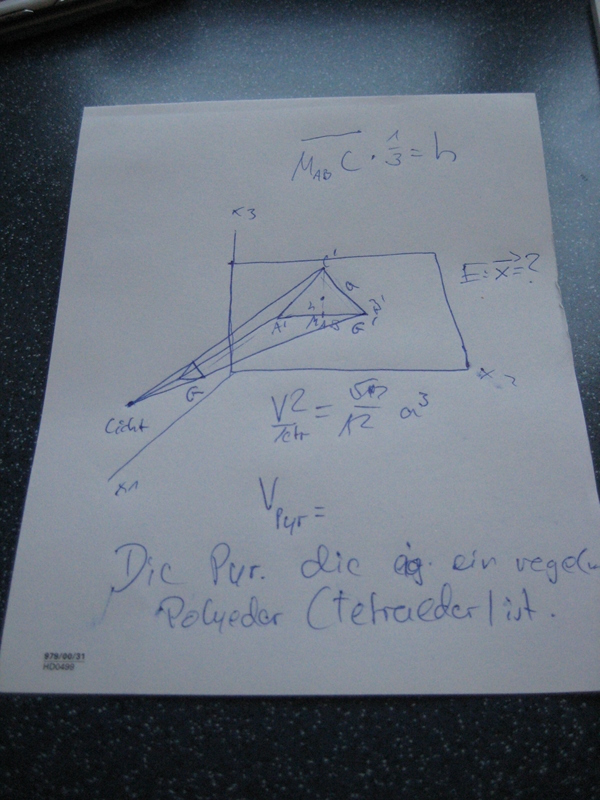 M_AB C · 1/3 = h
x3
C'
E: x⃗ = ?
a
h
A' M_AB B'
G'
G
x2
Licht
V2/Tetr = √2/12 a³
x1
V_Pyr =
Die Pyr. die eig. ein regel
Polyeder (Tetraeder) ist.
979/00/31
HD0499